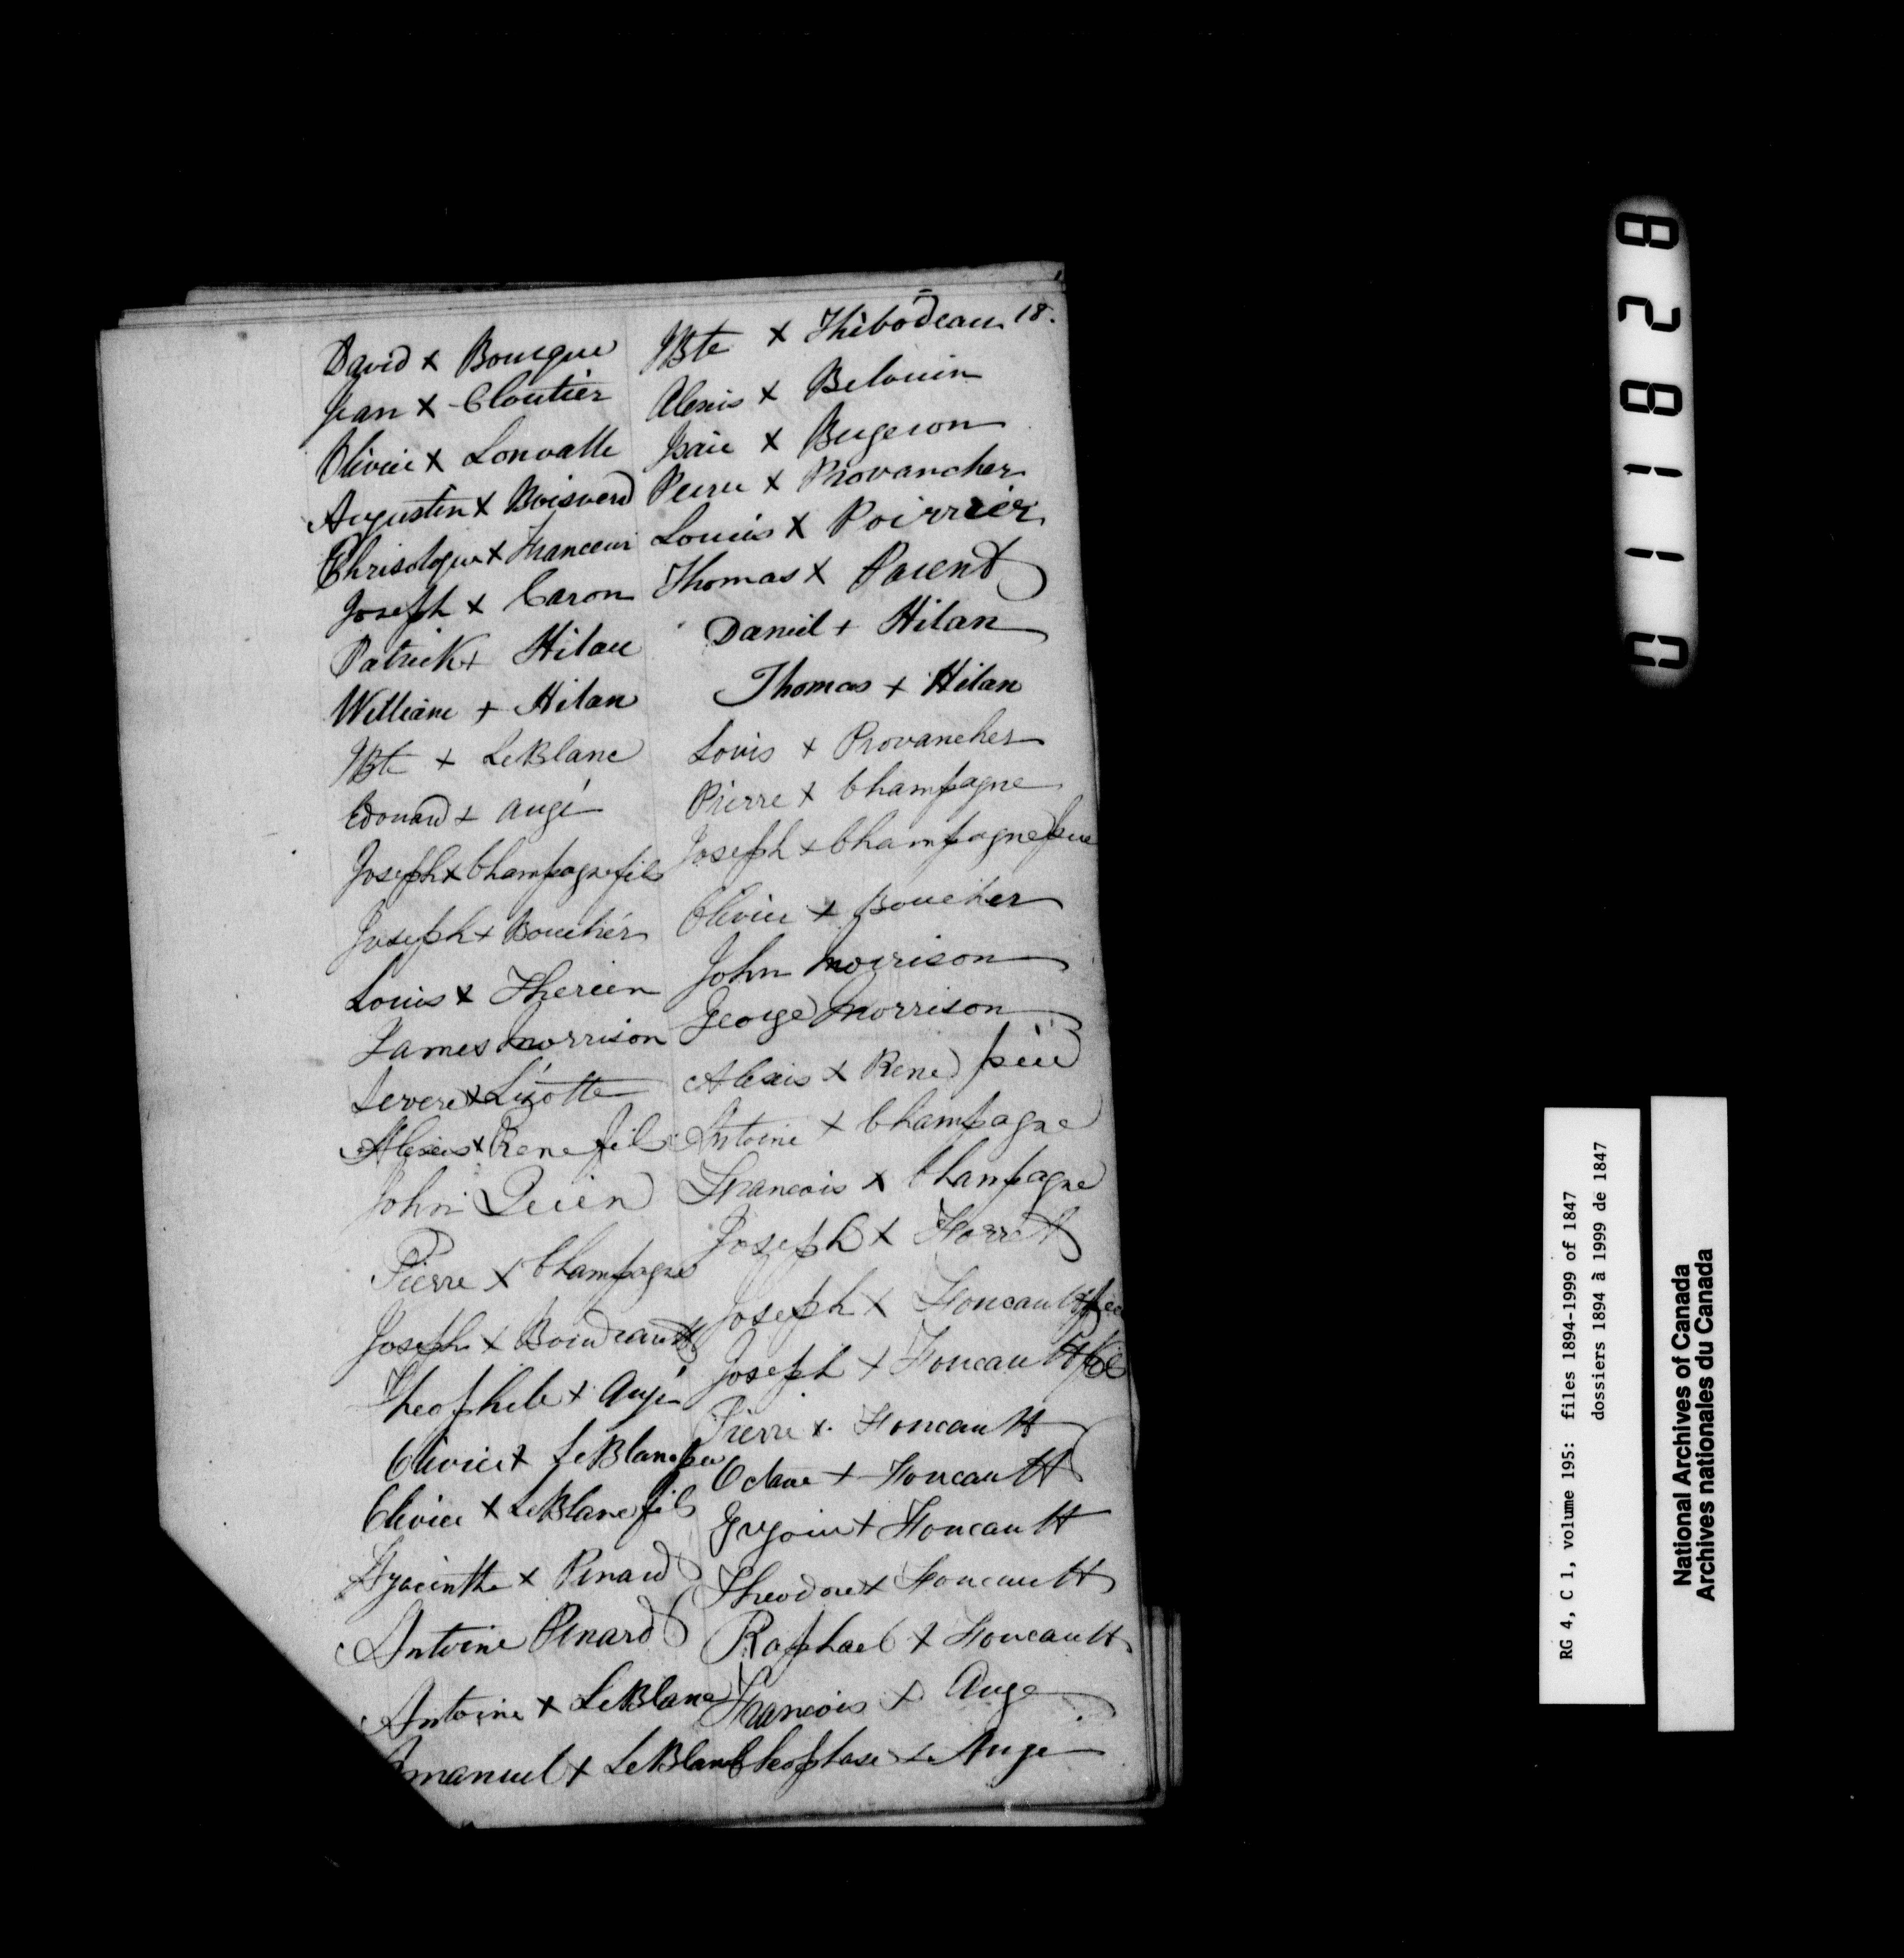 18.
David x Bourque
Jean x Cloutier
Olivier x Lonvalle
Augustin x Boisverd
Chrisologue x Francoeur
Joseph x Caron
Patrick + Hilan
William + Hilan
JBte + LeBlanc
Edouard + Augé
Joseph x Champagne fils
Joseph + Boucher
Louis x Therien
James Morrison
Severe x Lizotte
Alexis x Rene fils
John
Pierre x Champagne
Joseph x
Theophile + Augé
Olivier x LeBlanc per
Olivier x LeBlanc fils
Hyacinthe x Pinard
Antoine Pinard
Antoine x LeBlanc
Emanuel x LeBlanc
JBte x Thibodeau
Alexis x Belouin
Isaie x Bergeron
Pierre x Provancher
Louis x Poirrier
Thomas x Parent
Daniel + Hilan
Thomas + Hilan
Louis x Provancher
Pierre x Champagne
Joseph x Champagne pere
Olivier x Boucher
John Morrison
George Morrison
Alexis x Rene père
Antoine x Champagne
Francois x Champagne
Joseph x
Joseph x Foucault pere
Joseph + Foucault fils
Pierre x Foucault
Octave + Foucault
Grégoire + Foucault
Theodore x Foucault
Raphael x Foucault
Francois x Auge
Cleophase x Auge
011828
RG 4, C 1, volume 195: files 1894-1999 of 1847
dossiers 1894 à 1999 de 1847
National Archives of Canada
Archives nationales du Canada